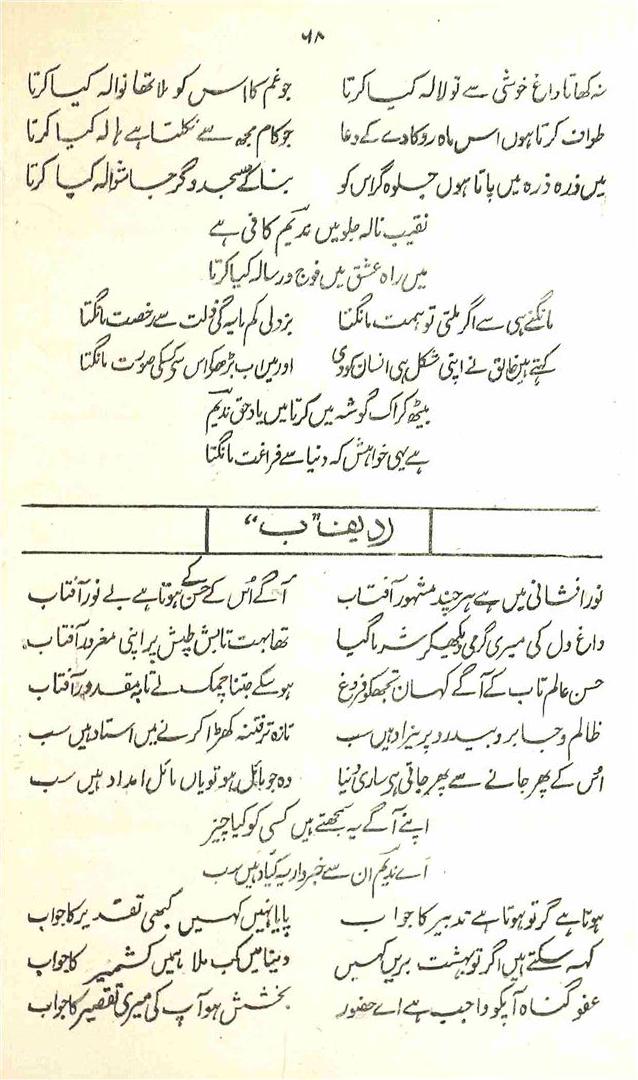 ۶۸
نہ کھاتا داغ خوشی سے تو لالہ کیا کرتا جو غم کا اس کو ملا تھا نوالہ کیا کرتا
طواف کرتا ہوں اس ماہ رو کا دے کے دعا جو کام مجھ سے نکلتا ہے ہالہ کیا کرتا
میں ذرہ ذرہ میں پاتا ہوں جلوہ گر اس کو بنا کے مسجد و گرجا شوالہ کیا کرتا
نقیب نالہ جلو میں ندیم کافی ہے
میں راہ عشق میں فوج و رسالہ کیا کرتا
مانگنے ہی سے اگر ملتی تو ہمت مانگتا بزدلی کم مایہ گی ذلت سے رخصت مانگتا
کہتے ہیں خالق نے اپنی شکل ہی انسان کو دی اور میں اب بڑھ کر اس سے کس کی صورت مانگتا
بیٹھ کر اک گوشہ میں کرتا میں یاد حق ندیم
ہے یہی خواہش کہ دنیا سے فراغت مانگتا
ردیف "ب"
نور افشانی میں ہے ہر چند مشہور آفتاب آگے اُس کے حسن کے ہوتا ہے بے نور آفتاب
داغ دل کی میری گرمی دیکھکر شرما گیا تھا بہت تابش طپش پر اپنی مغرور آفتاب
حسن عالم تاب کے آگے کہاں تجھکو فروغ ہو سکے جتنا چمک لے تابمقدور آفتاب
ظالم و جابر و بیدرد پریزاد ہیں سب تازہ تر فتنہ کھڑا کرنے میں استاد ہیں سب
اُس کے پھر جانے سے پھر جاتی ہے ساری دنیا وہ جو مائل ہو تو یاں مائل امداد ہیں سب
اپنے آگے یہ سمجھتے ہیں کسی کو کیا چیز
اے ندیم ان سے خبردار یہ ہیں سب
ہوتا ہے گر تو ہوتا ہے تدبیر کا جواب پایا نہیں کہیں کبھی تقدیر کا جواب
کہہ سکتے ہیں اگر تو بہشت بریں کہیں دنیا میں کب ملا ہمیں کشمیر کا جواب
عفو گناہ آپکو واجب ہے اے حضور بخشش ہو آپ کی میری تقصیر کا جواب